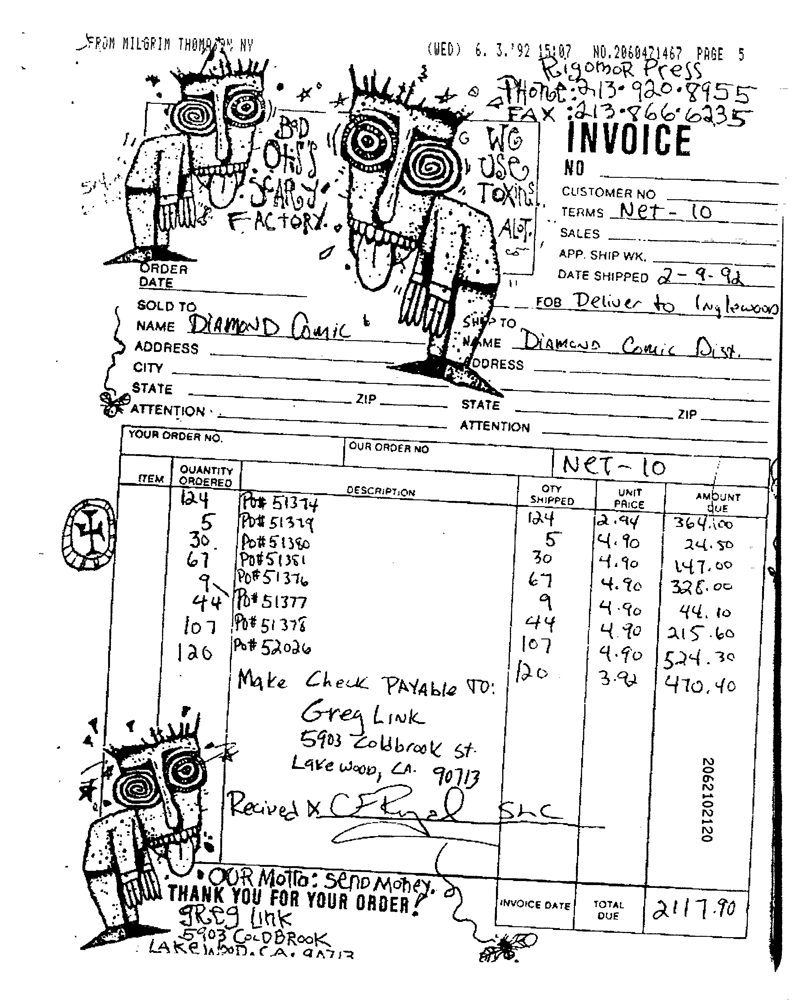 FROM MILGRIM THOMAJAN NY (WED) 6. 3.'92 15:07 NO.2060421467 PAGE 5
RigomoR Press
PHONE:213•920•8955
FAX:213•866•6235
BaD
Otis's
SCARY
FACTORY.
WE
USE
TOXINS
ALOT.
INVOICE
NO
CUSTOMER NO
TERMS Net-10
SALES
APP. SHIP WK.
DATE SHIPPED 2-9-92
FOB Deliver to Inglewood
ORDER
DATE
SOLD TO
NAME DIAMOND Comic
ADDRESS
CITY
STATE ZIP
ATTENTION
SHIP TO
NAME DIAMOND Comic Dist.
ADDRESS
STATE ZIP
ATTENTION
YOUR ORDER NO. OUR ORDER NO NET-10
ITEM QUANTITY ORDERED DESCRIPTION QTY SHIPPED UNIT PRICE AMOUNT DUE
124 PO# 51374 124 2.94 364.00
5 PO# 51379 5 4.90 24.50
30 PO# 51380 30 4.90 147.00
67 PO# 51381 67 4.90 328.00
9 PO# 51376 9 4.90 44.10
44 PO# 51377 44 4.90 215.60
107 PO# 51378 107 4.90 524.30
120 PO# 52026 120 3.92 470.40
Make Check PAYABLE TO:
Greg LINK
5903 Coldbrook St.
Lakewood, CA. 90713
2062102120
Recived X
OUR Motto: SEND Money.
THANK YOU FOR YOUR ORDER!
GREG LINK
5903 COLDBROOK
LAKEWOOD. CA. 90713
INVOICE DATE TOTAL DUE 2117.90